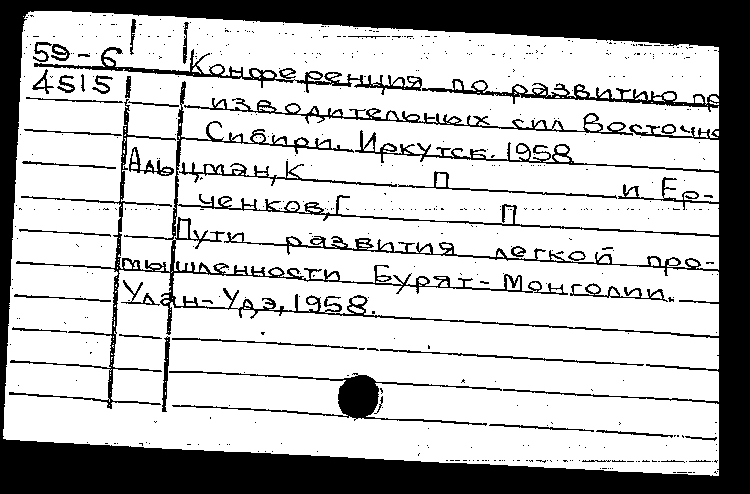 59-6
4515
Конференция по развитию пр
изводительных сил Восточно
Сибири. Иркутск. 1958
Альцман, К П и Ер-
ченков, Г П
Пути развития легкой про-
мышленности Бурят-Монголии.
Улан-Удэ, 1958.